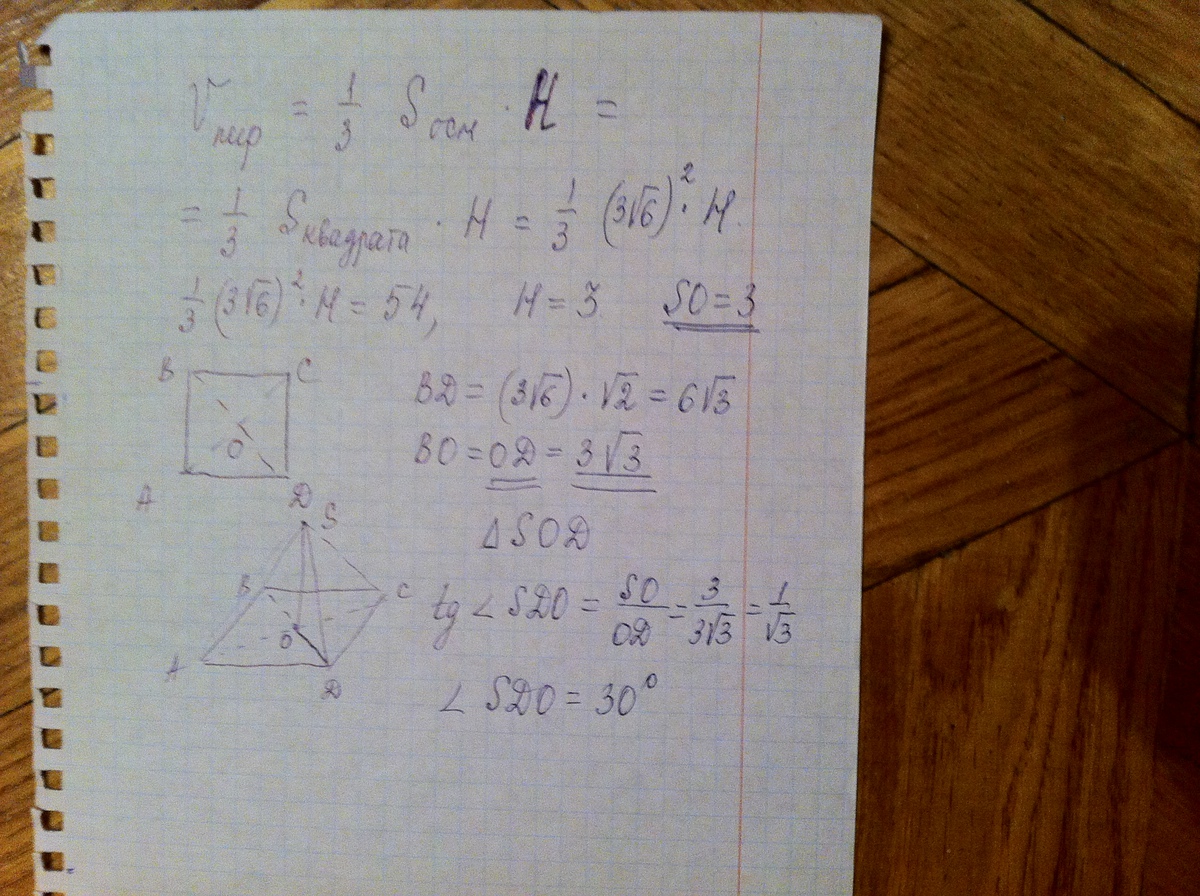 V пир = 1/3 S осн · H =
= 1/3 S квадрата · H = 1/3 (3√6)² · H.
1/3 (3√6)² · H = 54, H = 3 SO = 3
B C
BD = (3√6) · √2 = 6√3
O
BO = OD = 3√3
A D
S
△SOD
B C
tg ∠ SDO = SO/OD = 3/3√3 = 1/√3
O
A D
∠ SDO = 30°